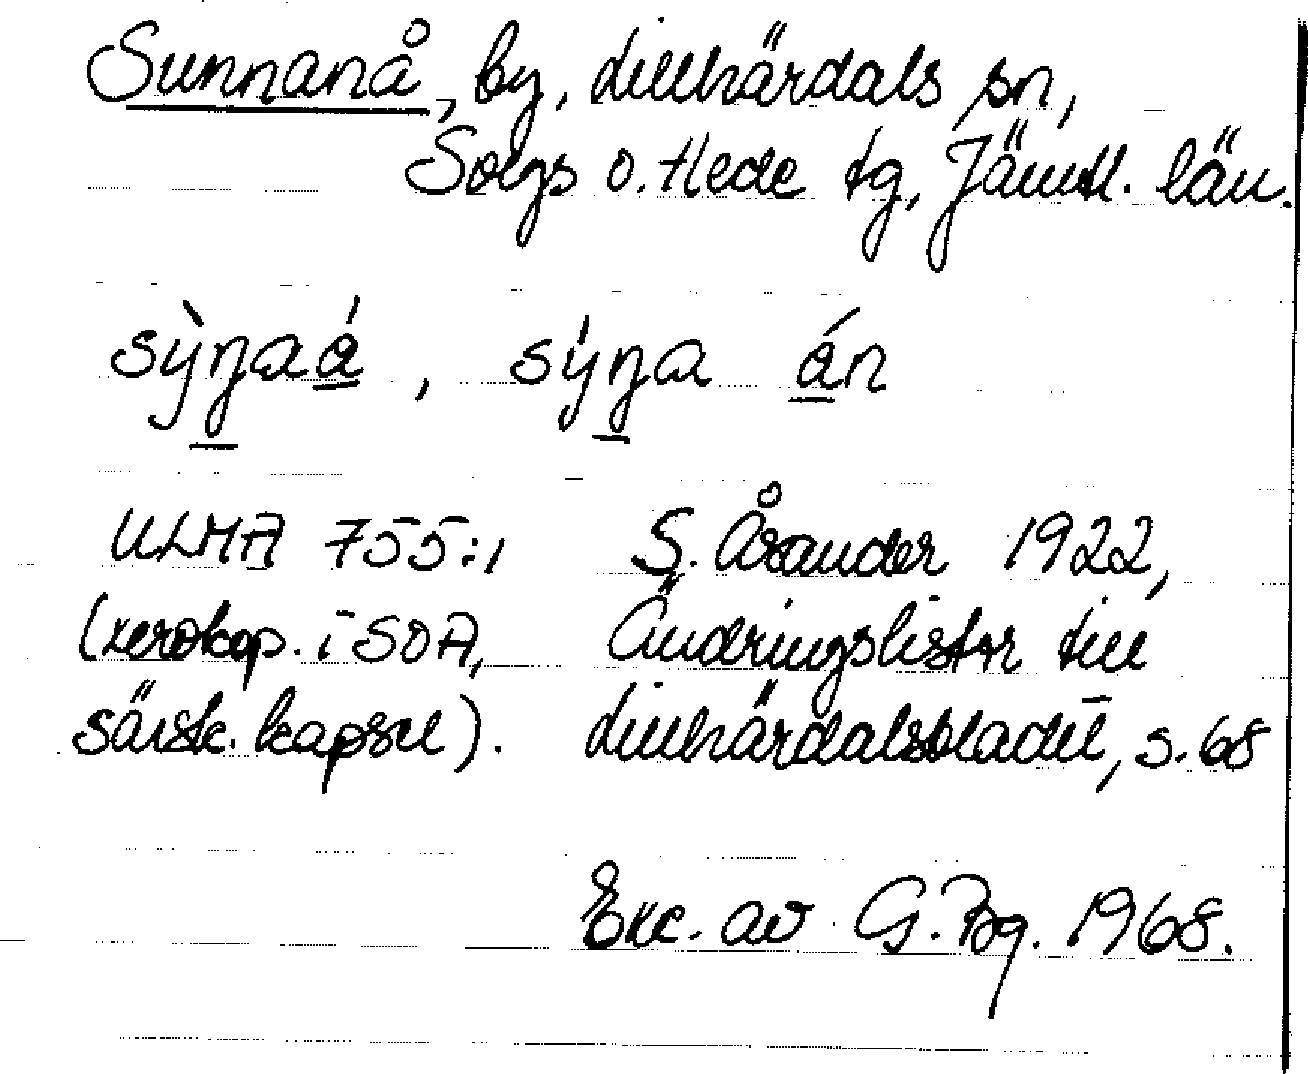 Sunnanå, by, Lillhärdals sn,
Svegs o. Hede tg, Jämtl. län.
sỳŋaá, sýŋa án
ULMA 755:1 S. Årsander 1922,
(xerokop. i SOA, Ändringslistor till
särsk. kapsel). Lillhärdalsbladet, s. 68
Exc. av G. Bg. 1968.